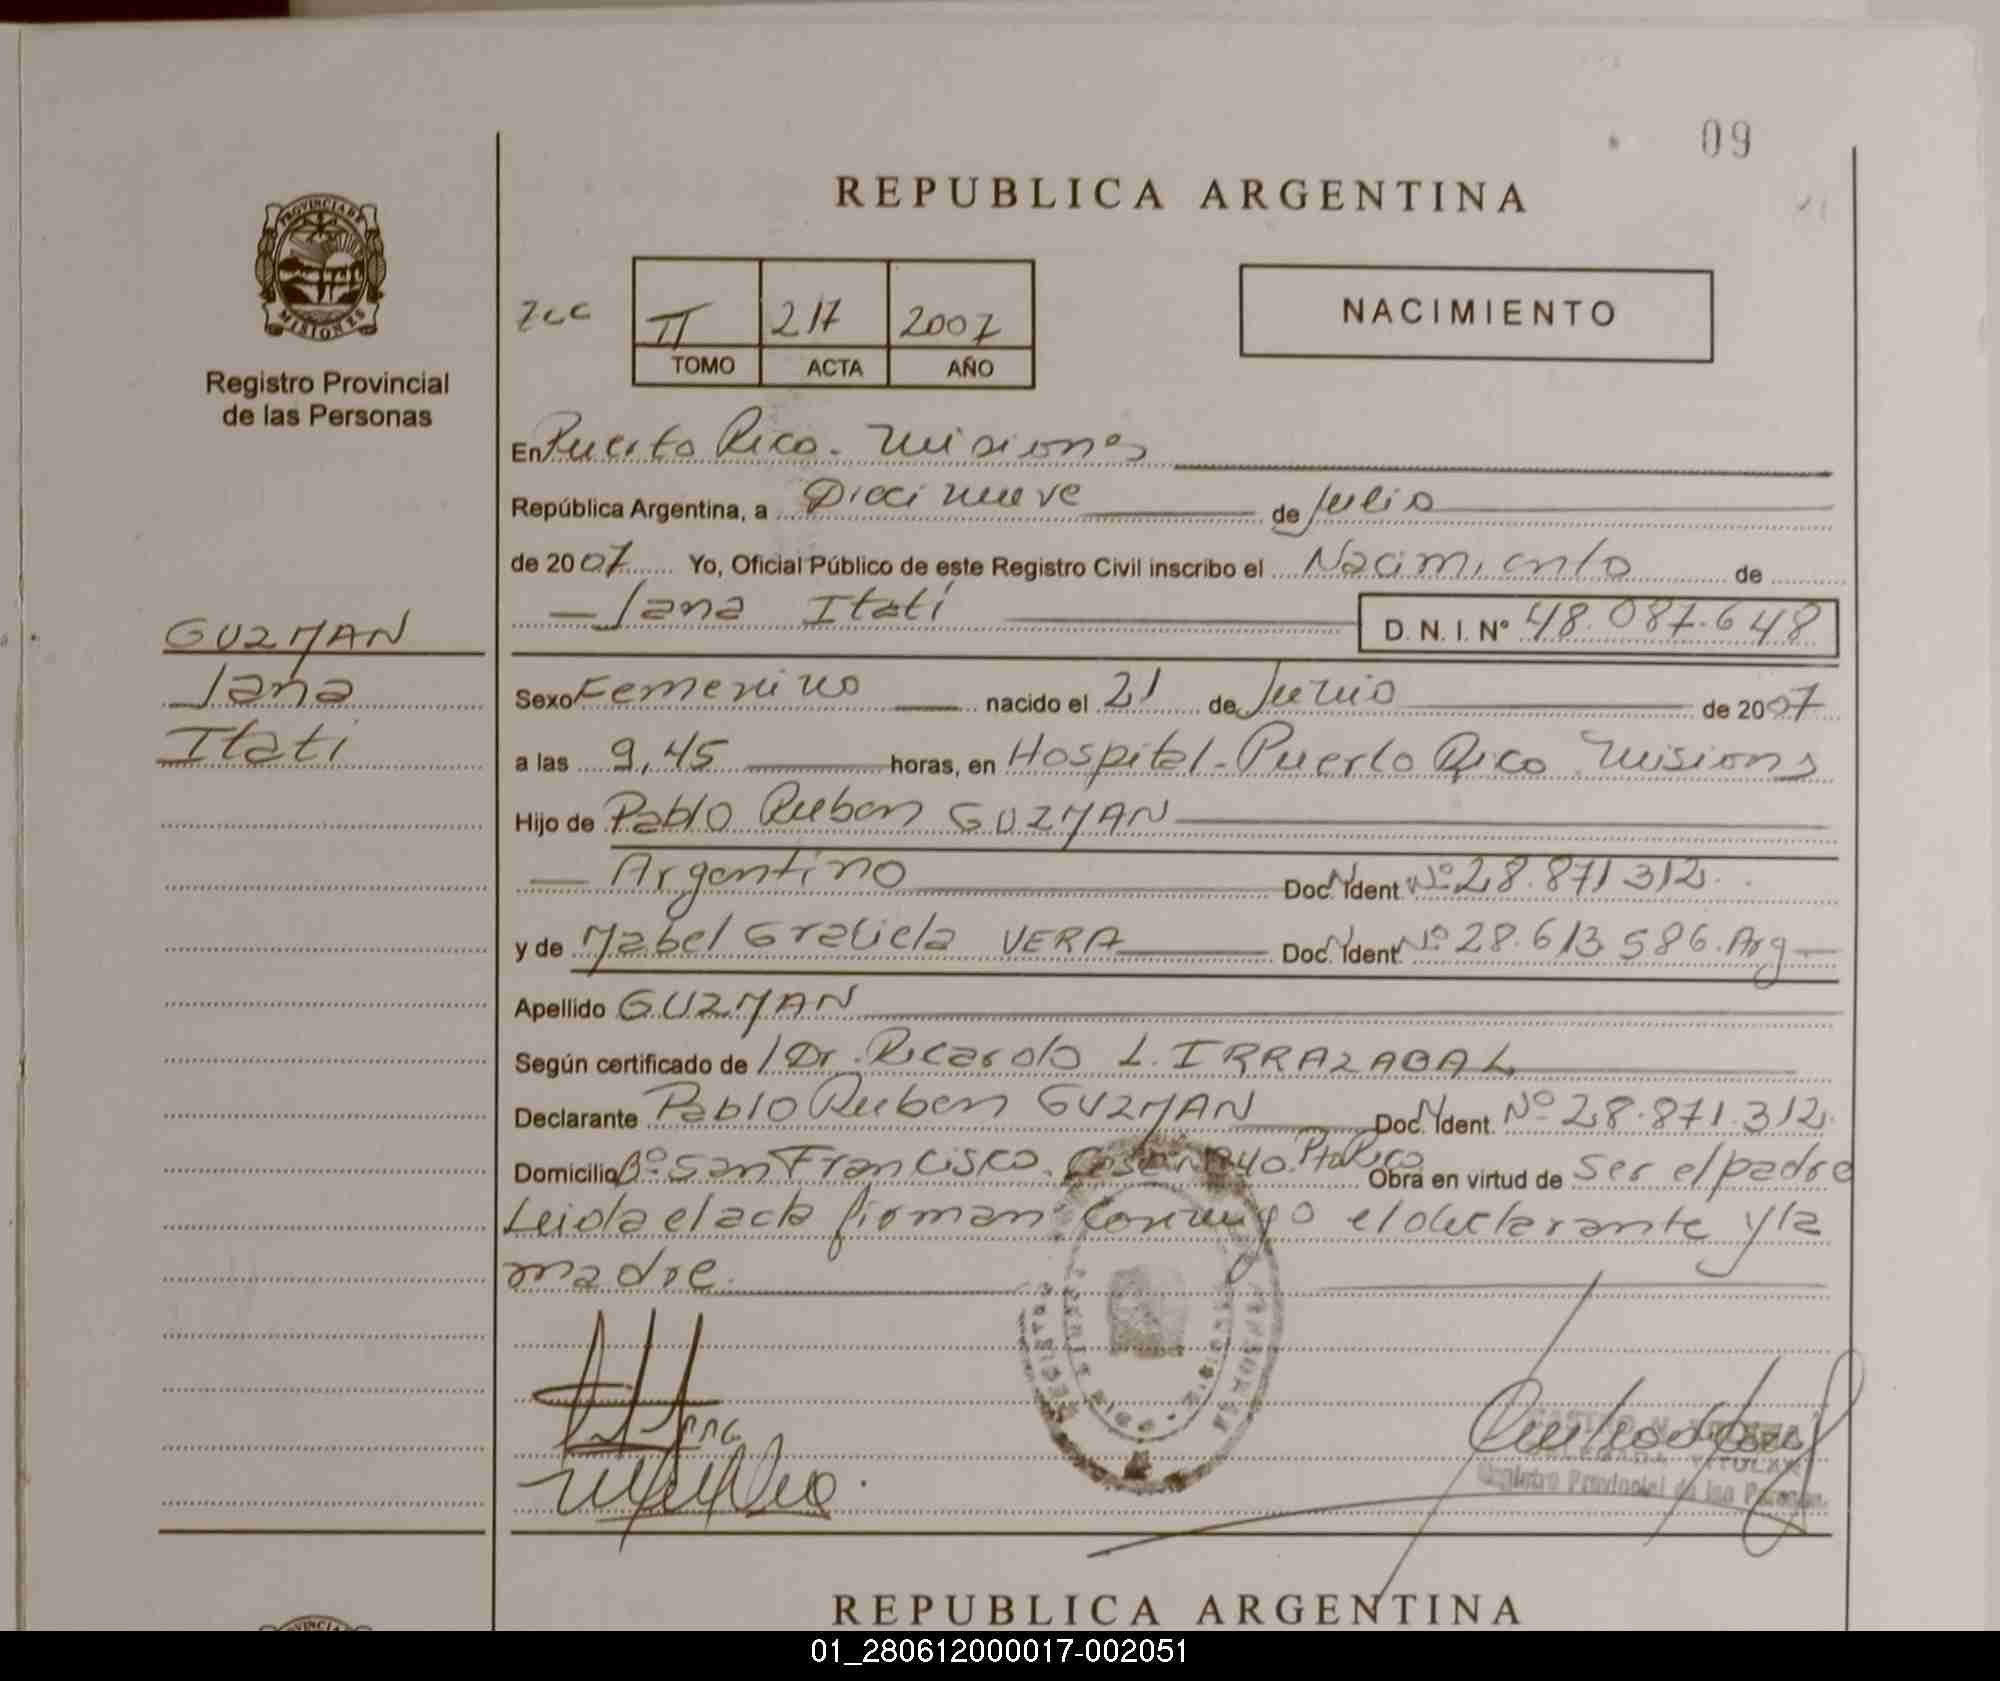 09
REPUBLICA ARGENTINA
PROVINCIA DE
MISIONES
Registro Provincial
de las Personas
II 217 2007
TOMO ACTA AÑO
NACIMIENTO
En Puerto Rico. Misiones
República Argentina, a Diecinueve de Julio
de 2007 Yo, Oficial Público de este Registro Civil inscribo el Nacimiento de
Jana Itatí D. N. I. Nº 48.087.648
GUZMAN
Jana
Itati
Sexo Femenino nacido el 21 de Junio de 2007
a las 9,45 horas, en Hospital - Puerto Rico Misiones
Hijo de Pablo Ruben GUZMAN
Argentino Doc. Ident. Nº 28.871 312.
y de Mabel Graciela VERA Doc. Ident. Nº 28.613 586. Arg
Apellido GUZMAN
Según certificado de Dr. Ricardo L. IRRAZABAL
Declarante Pablo Ruben GUZMAN Doc. Ident. Nº 28.871.312.
Domicilio Bº San Francisco. Pto Rico Obra en virtud de ser el padre
Leida el acta firman conmigo el declarante y la
madre.
TITULAR
Registro Provincial de las Personas
REPUBLICA ARGENTINA
01_280612000017-002051